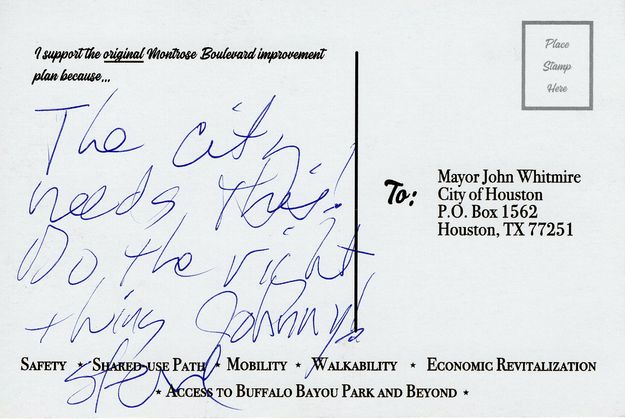 I support the original Montrose Boulevard improvement
plan because...
The city
needs this!
Do the right
thing Johnny!
Place
Stamp
Here
To:
Mayor John Whitmire
City of Houston
P.O. Box 1562
Houston, TX 77251
Safety ⋆ Shared-use Path ⋆ Mobility ⋆ Walkability ⋆ Economic Revitalization
⋆ Access to Buffalo Bayou Park and Beyond ⋆